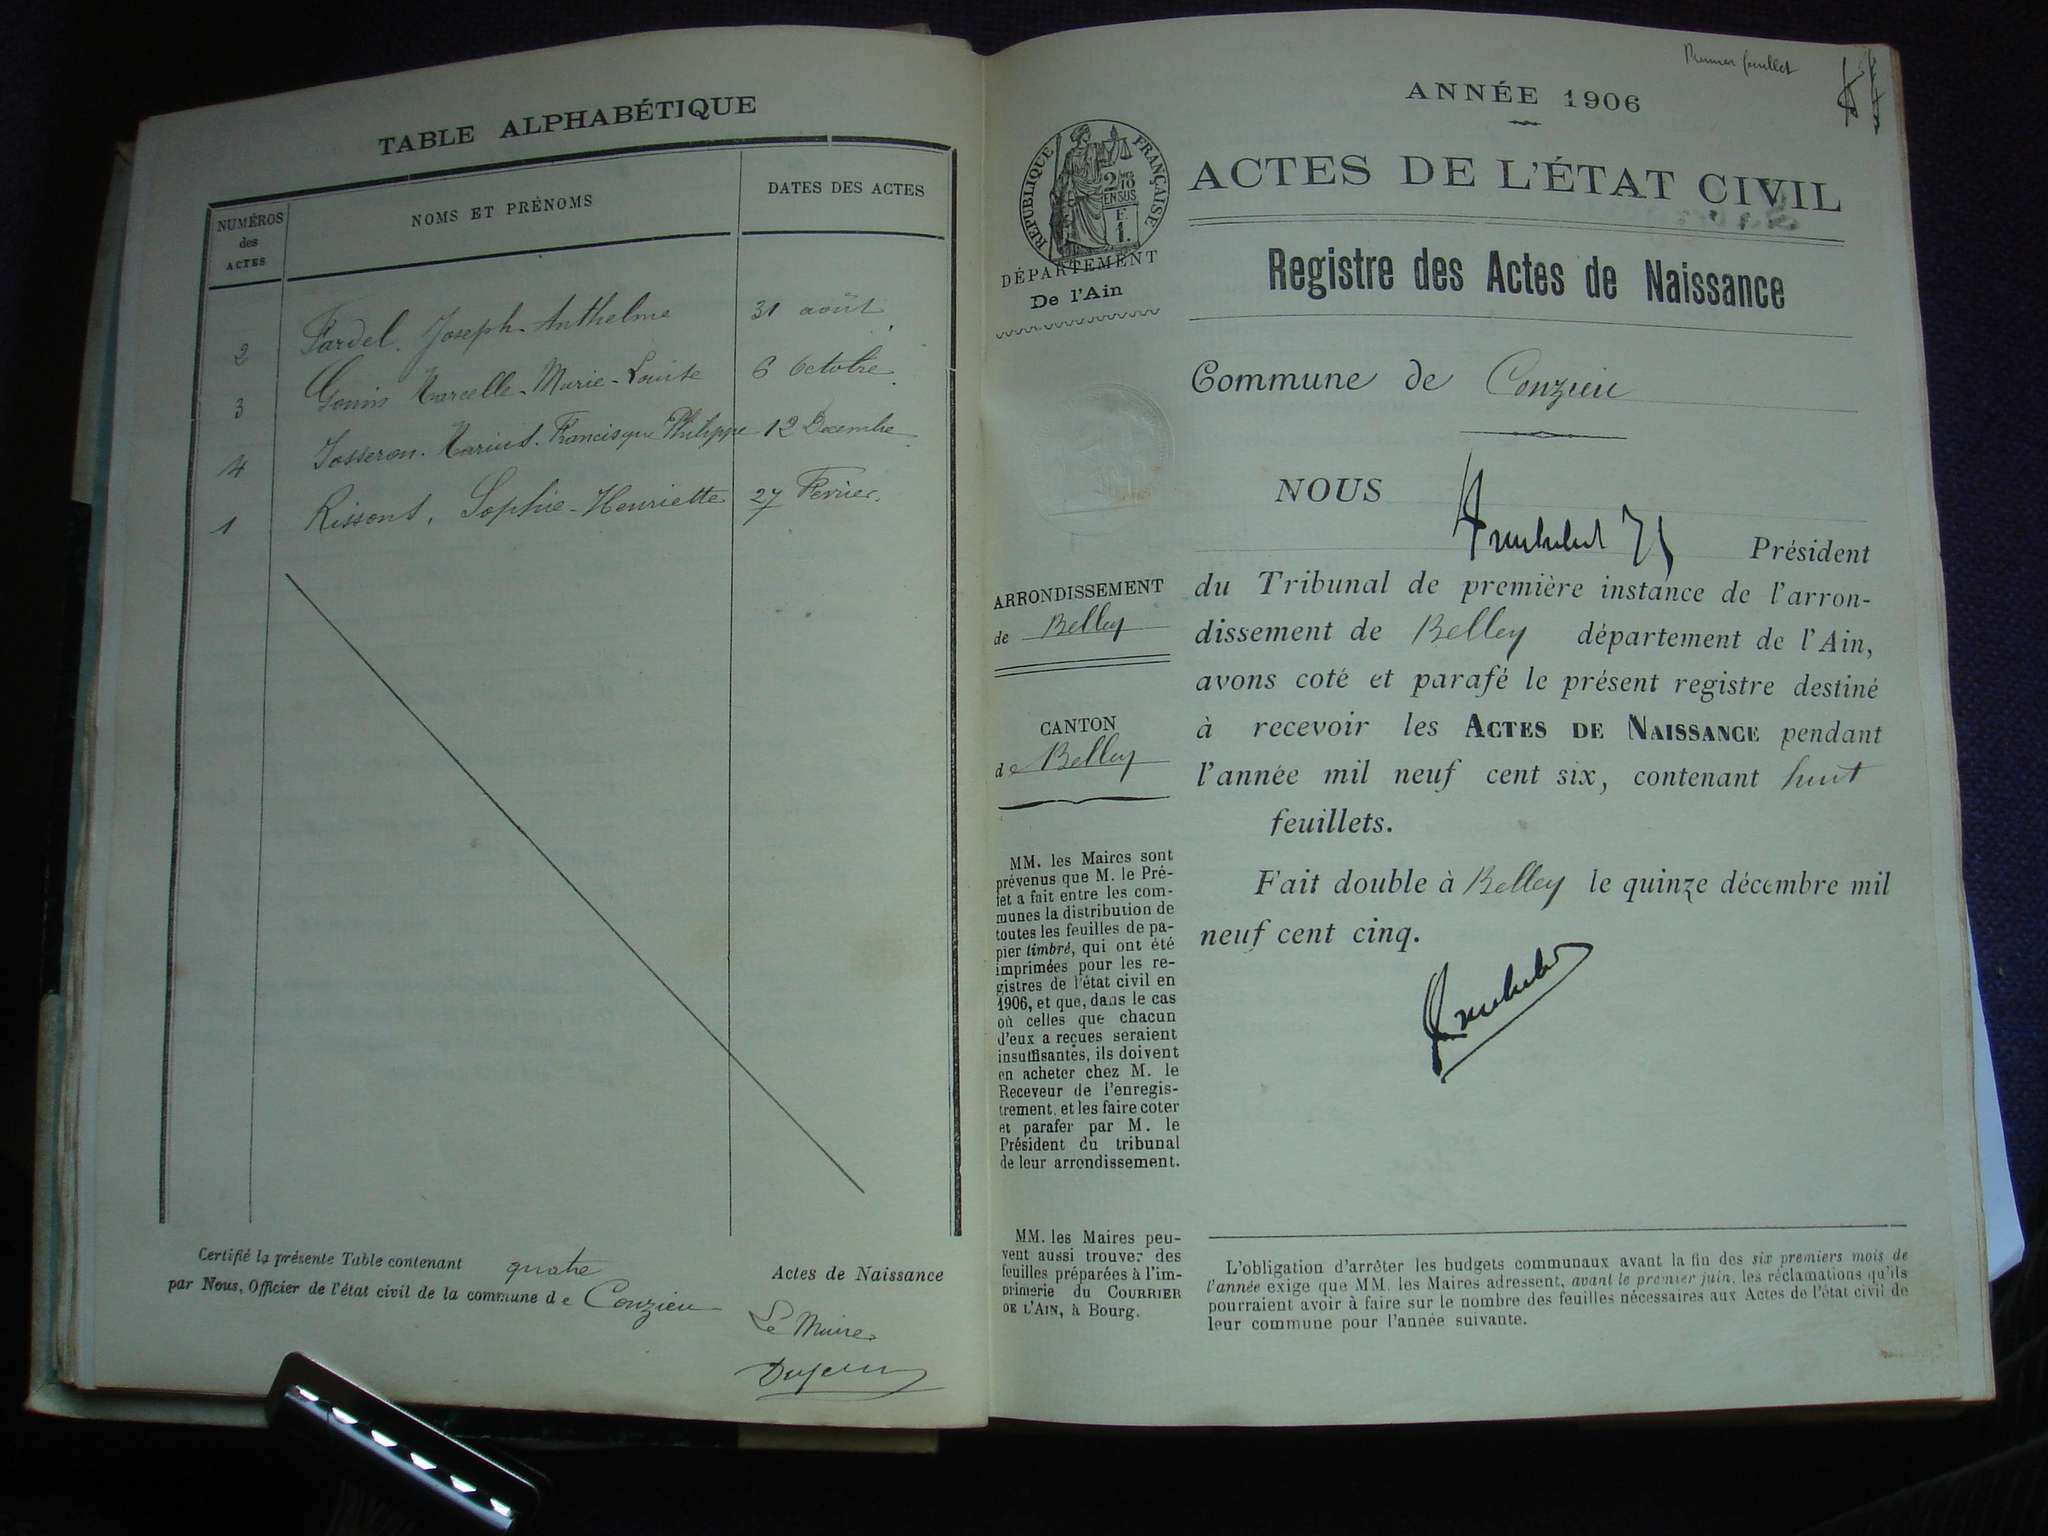 TABLE ALPHABÉTIQUE
NUMÉROS des ACTES
NOMS ET PRÉNOMS
DATES DES ACTES
2 Fardel. Joseph-Anthelme 31 août
3 Gouin Marcelle-Marie-Louise 6 Octobre
4 Josseron. Marius-Francisque Philippe 12 Decembre
1 Rissont, Sophie-Henriette 27 Fevrier
Certifié la présente Table contenant quatre Actes de Naissance
par Nous, Officier de l'état civil de la commune de Conzieu
Le Maire
Premier feuillet
ANNÉE 1906
ACTES DE L'ÉTAT CIVIL
RÉPUBLIQUE FRANÇAISE
2/10 EN SUS
F. 1.
DÉPARTEMENT
De l'Ain
Registre des Actes de Naissance
Commune de Conzieu
NOUS
Président
du Tribunal de première instance de l'arron-
dissement de Belley département de l'Ain,
avons coté et parafé le présent registre destiné
à recevoir les ACTES DE NAISSANCE pendant
l'année mil neuf cent six, contenant huit
feuillets.
Fait double à Belley le quinze décembre mil
neuf cent cinq.
ARRONDISSEMENT
de Belley
CANTON
de Belley
MM. les Maires sont
prévenus que M. le Pré-
fet a fait entre les com-
munes la distribution de
toutes les feuilles de pa-
pier timbré, qui ont été
imprimées pour les re-
gistres de l'état civil en
1906, et que, dans le cas
où celles que chacun
d'eux a reçues seraient
insuffisantes, ils doivent
en acheter chez M. le
Receveur de l'enregis-
trement, et les faire coter
et parafer par M. le
Président du tribunal
de leur arrondissement.
MM. les Maires peu-
vent aussi trouver des
feuilles préparées à l'im-
primerie du COURRIER
DE L'AIN, à Bourg.
L'obligation d'arrêter les budgets communaux avant la fin des six premiers mois de
l'année exige que MM. les Maires adressent, avant le premier juin, les réclamations qu'ils
pourraient avoir à faire sur le nombre des feuilles nécessaires aux Actes de l'état civil de
leur commune pour l'année suivante.